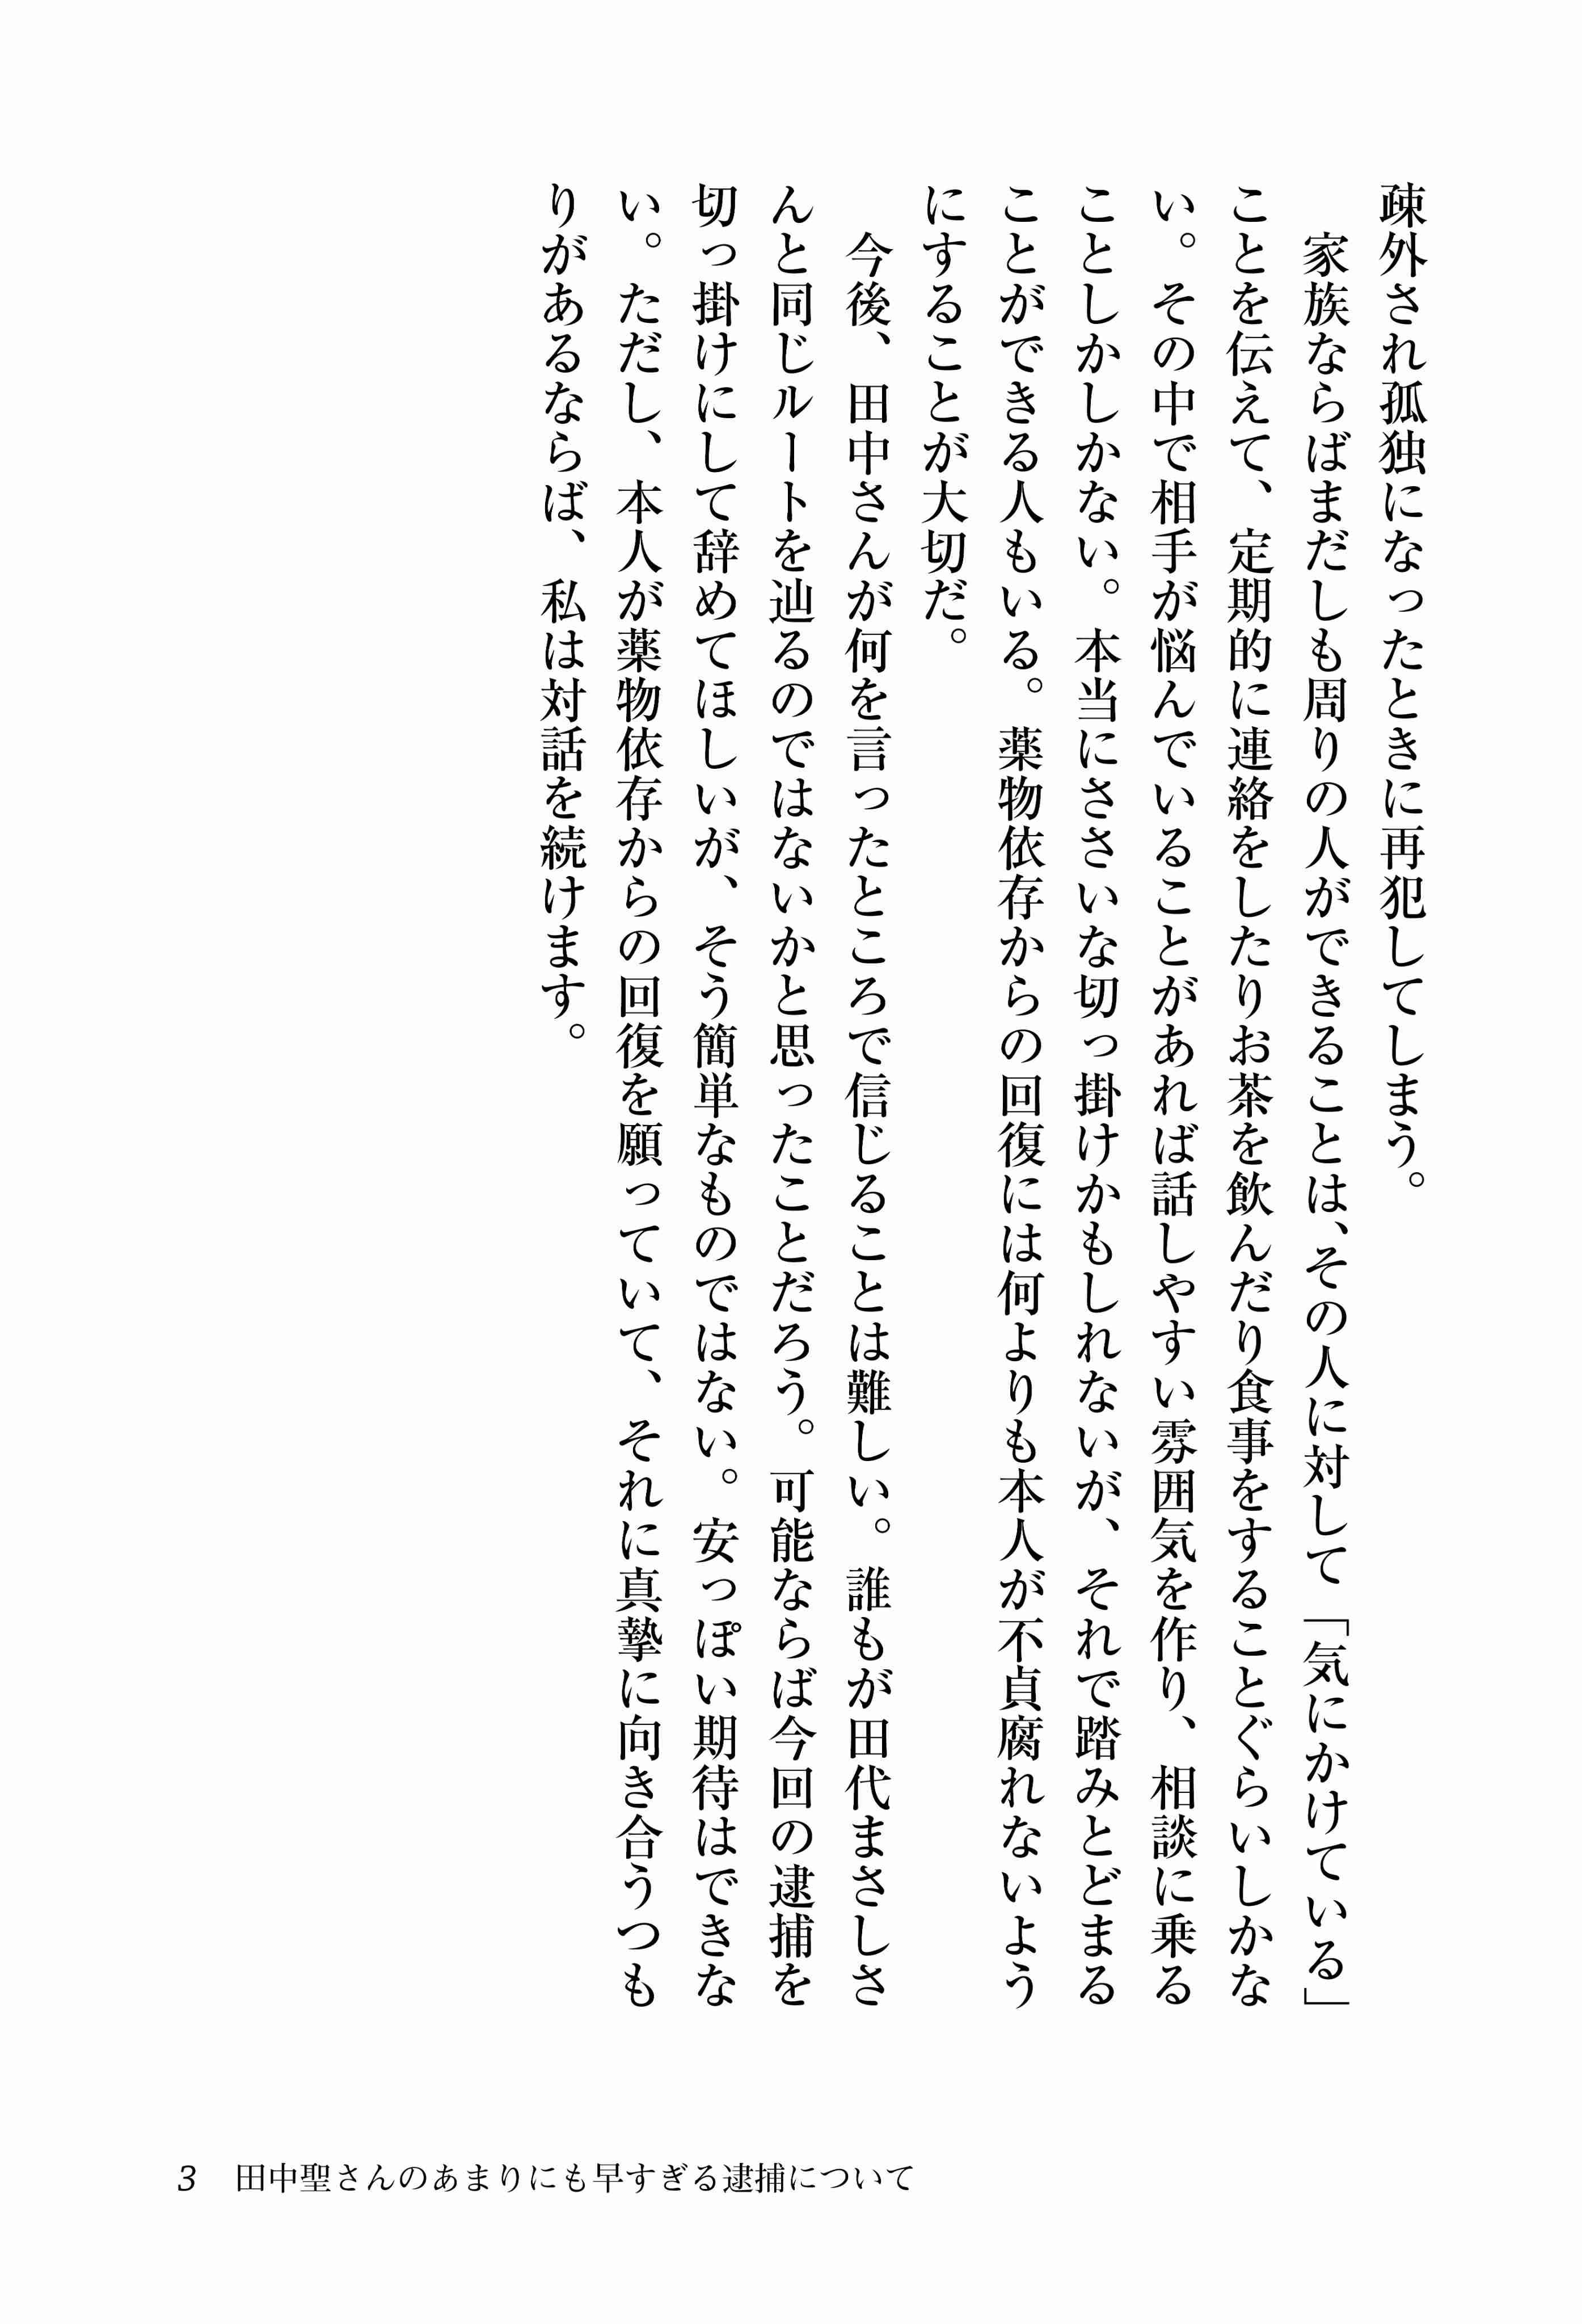 疎外され孤独になったときに再犯してしまう。
　家族ならばまだしも周りの人ができることは、その人に対して「気にかけている」
ことを伝えて、定期的に連絡をしたりお茶を飲んだり食事をすることぐらいしかな
い。その中で相手が悩んでいることがあれば話しやすい雰囲気を作り、相談に乗る
ことしかしかない。本当にささいな切っ掛けかもしれないが、それで踏みとどまる
ことができる人もいる。薬物依存からの回復には何よりも本人が不貞腐れないよう
にすることが大切だ。
　今後、田中さんが何を言ったところで信じることは難しい。誰もが田代まさしさ
んと同じルートを辿るのではないかと思ったことだろう。可能ならば今回の逮捕を
切っ掛けにして辞めてほしいが、そう簡単なものではない。安っぽい期待はできな
い。ただし、本人が薬物依存からの回復を願っていて、それに真摯に向き合うつも
りがあるならば、私は対話を続けます。
3　田中聖さんのあまりにも早すぎる逮捕について